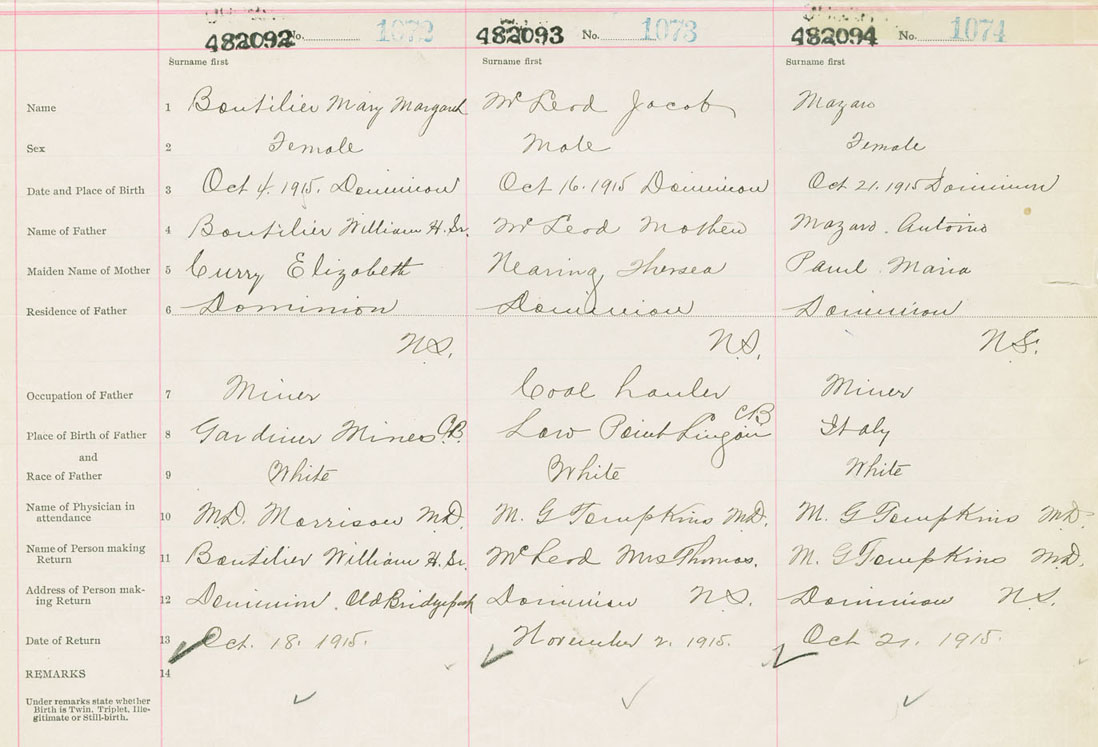 482092 No. 1072 482093 No. 1073 482094 No. 1074
Surname first Surname first Surname first
Name 1 Boutilier Mary Margaret McLeod Jacob Mazaro
Sex 2 Female Male Female
Date and Place of Birth 3 Oct 4. 1915. Dominion Oct 16. 1915 Dominion Oct 21. 1915 Dominion
Name of Father 4 Boutilier William H. Sr. McLeod Mathew Mazaro. Antonio
Maiden Name of Mother 5 Curry Elizabeth Nearing Thersea Paul. Maria
Residence of Father 6 Dominion Dominion Dominion
N.S. N.S. N.S.
Occupation of Father 7 Miner Coal hauler Miner
Place of Birth of Father 8 Gardiner Mines C.B. Low Point Lingan CB Italy
and
Race of Father 9 White White White
Name of Physician in
attendance 10 M.D. Morrison M.D. M. G Tompkins M.D. M. G Tompkins M.D.
Name of Person making
Return 11 Boutilier William H. Sr. McLeod Mrs Thomas. M. G Tompkins M.D.
Address of Person mak-
ing Return 12 Dominion. Old Bridgeport Dominion N.S. Dominion N.S.
Date of Return 13 Oct. 18. 1915. November 2. 1915. Oct 21. 1915.
REMARKS 14
Under remarks state whether
Birth is Twin, Triplet, Ille-
gitimate or Still-birth.